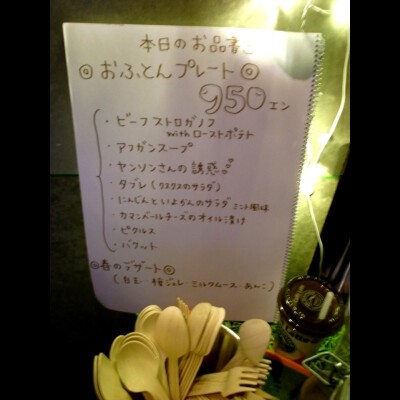 本日のお品書き
◎おふとんプレート◎
950エン
・ビーフストロガノフ
withローストポテト
・アフガンスープ
・ヤンソンさんの誘惑
・タブレ(クスクスのサラダ)
・にんじんといよかんのサラダ ミント風味
・カマンベールチーズのオイル漬け
・ピクルス
・バケット
◎春のデザート◎
(白玉 桜ジュレ ミルクムース あんこ)